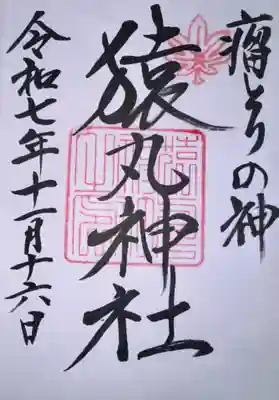 痛とりの神
猿丸神社
令和七年十一月十六日